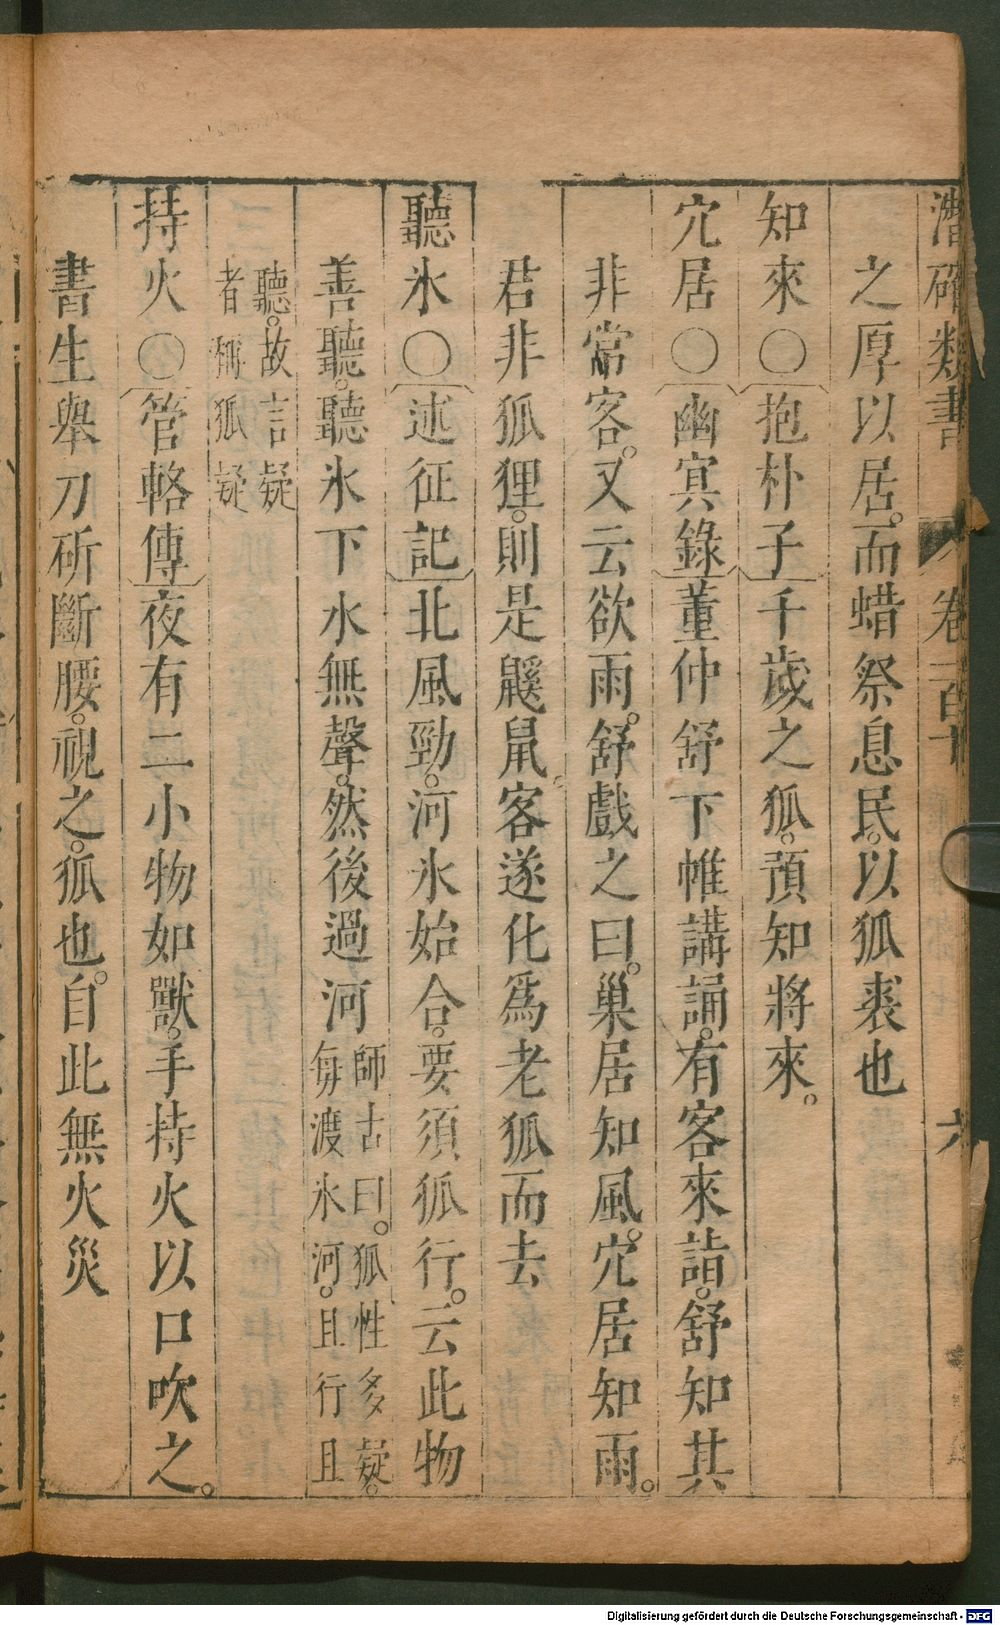 潛確類書 卷一百十 六
之厚以居。而蜡祭息民。以狐裘也
知來○抱朴子千歲之狐。預知將來。
穴居○幽㝠錄董仲舒下帷講誦。有客來詣。舒知其
非常客。又云欲雨。舒戲之曰。巢居知風。穴居知雨。
君非狐狸。則是鼷鼠。客遂化爲老狐而去
聽氷○述征記北風勁。河氷始合。要須狐行。云此物
善聽。聽氷下水無聲。然後過河師古曰。狐性多疑。
每渡氷河。且行且
聽。故言疑
者稱狐疑
持火○管輅傳夜有二小物如獸。手持火以口吹之。
書生舉刀斫斷腰。視之。狐也。自此無火災
Digitalisierung gefördert durch die Deutsche Forschungsgemeinschaft - DFG